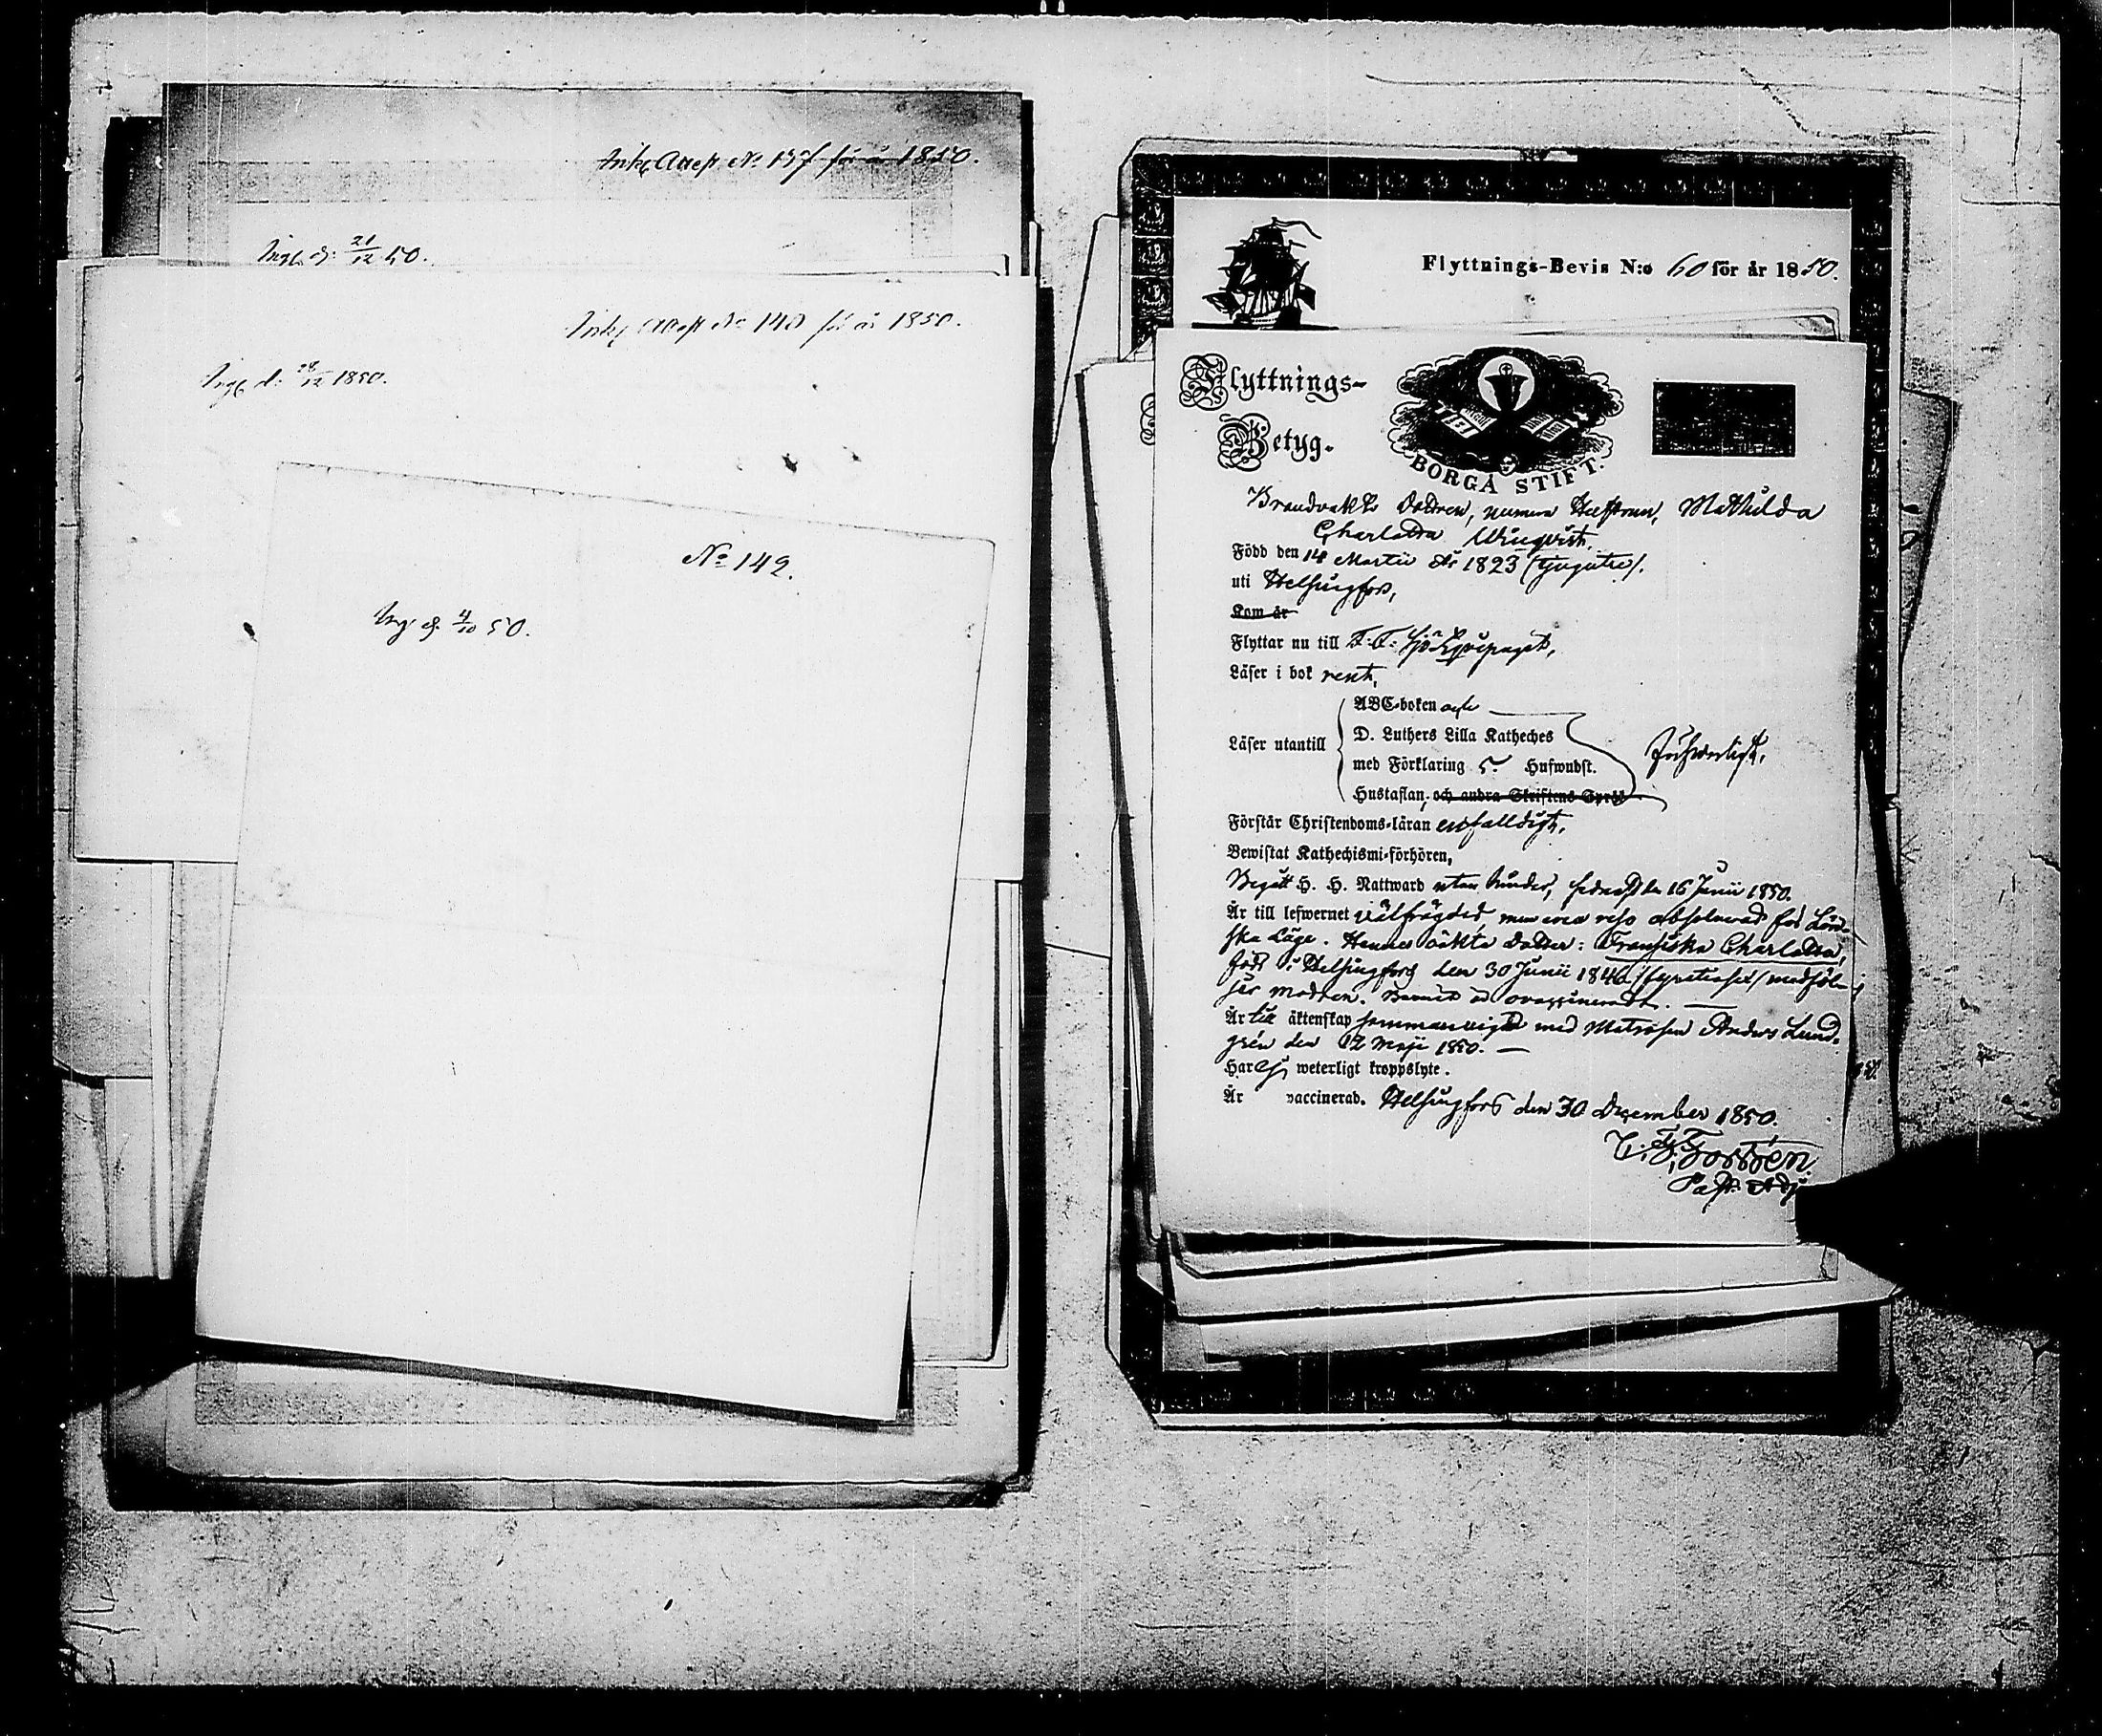 Inkf Attest No 137 för år 1850.
Ingf d: 21/12 50.
Inkf Attest No 140 för år 1850.
Ingf d: 28/12 1850.
No 142.
Ing. d. 4/10 50.
Flyttnings-Bevis N:o 60 för år 1850.
Flyttnings-
Betyg.
BORGÅ STIFT.
Brandvakts Dottren, numera Hustrun, Mathilda
Charlotta Winqvist,
Född den 14 Martii År 1823 (tjugutre).
uti Helsingfors,
Kom år
Flyttar nu till F. F. Sjö Equipaget,
Läser i bok rent,
ABC-boken och
Läser utantill
D. Luthers Lilla Katheches
med Förklaring 5. Hufwudst.
Hustaflan, och andra Skriftens Språk
Försvarligt,
Förstår Christendoms-läran enfaldigt,
Bewistat Kathechismi-förhören,
Begått H. H. Nattward utan hinder, sednast den 16 Junii 1850.
Är till lefwernet välfrägdad men en resa absolverad för Löns-
ka Läge. Hennes oäkta dotter: Fransiska Charlotta,
född i Helsingfors den 30 Junii 1846 (fyratiosex) medföl-
jer modren. Barnet är ovaccineradt.
Är till äktenskap sammanvigd med Matrosen Anders Lund-
grén den 12 Maji 1850. —
Har ej weterligt kroppslyte.
Är vaccinerad. Helsingfors den 30 December 1850.
C. F. Forstén
Past. Adj